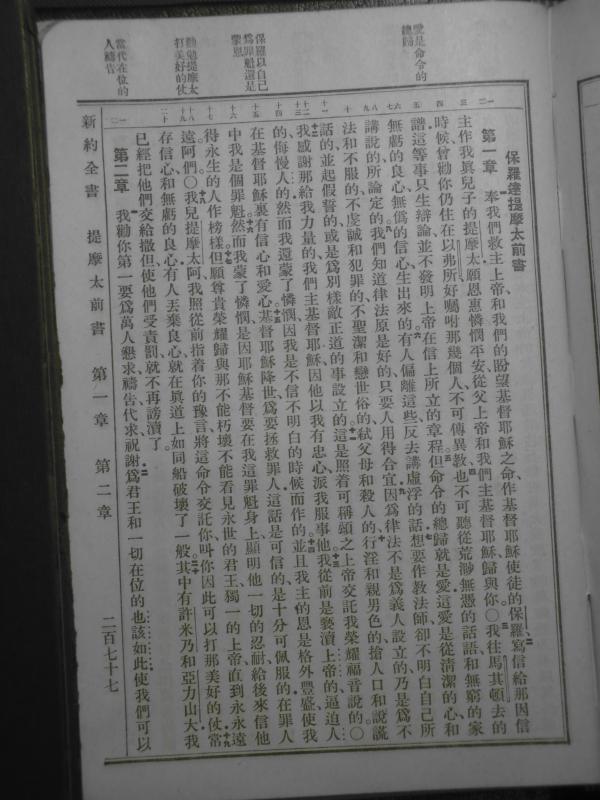 愛是命令的
總歸
保羅以自己
爲罪魁還是
蒙恩
勸勉提摩太
打美好的仗
當代在位的
人禱告
保羅達提摩太前書
第一章 奉我們救主上帝、和我們的盼望基督耶穌之命、作基督耶穌使徒的保羅、寫信給那因信
主作我眞兒子的提摩太、願恩惠憐憫平安、從父上帝和我們主基督耶穌歸與你。〇我往馬其頓去的
時候、曾勸你仍住在以弗所、好囑咐那幾個人、不可傳異教、也不可聽從荒渺無憑的話語、和無窮的家
譜、這等事只生辯論、並不發明上帝在信上所立的章程。但命令的總歸就是愛、這愛是從清潔的心、和
無虧的良心、無僞的信心、生出來的。有人偏離這些、反去講虛浮的話、想要作教法師、卻不明白自己所
講說的、所論定的。我們知道律法原是好的、只要人用得合宜、因爲律法不是爲義人設立的、乃是爲不
法和不服的、不虔誠和犯罪的、不聖潔和戀世俗的、弒父母和殺人的、行淫和親男色的、搶人口和說謊
話的、並起假誓的、或是爲別樣敵正道的事設立的、這是照着可稱頌之上帝交託我榮耀福音說的。〇
我感謝那給我力量的、我們主基督耶穌、因他以我有忠心、派我服事他、我從前是褻瀆上帝的、逼迫人
的、侮慢人的、然而我還蒙了憐憫、因我是不信不明白的時候而作的、並且我主的恩是格外豐盛、使我
在基督耶穌裏有信心和愛心。基督耶穌降世、爲要拯救罪人、這話是可信的、是十分可佩服的、在罪人
中我是個罪魁。然而我蒙了憐憫、是因耶穌基督要在我這罪魁身上、顯明他一切的忍耐、給後來信他
得永生的人作榜樣。但願尊貴榮耀歸與那不能朽壞不能看見永世的君王、獨一的上帝、直到永永遠
遠、阿們。〇我兒提摩太阿、我照從前指着你的豫言、將這命令交託你、叫你因此可以打那美好的仗、常
存信心、和無虧的良心、有人丟棄良心、就在眞道上如同船破壞了一般。其中有許米乃和亞力山大、我
已經把他們交給撒但、使他們受責罰、就不再謗瀆了。
第二章 我勸你第一要爲萬人懇求禱告、代求祝謝、爲君王和一切在位的、也該如此、使我們可以
新約全書 提摩太前書 第一章 第二章 二百七十七